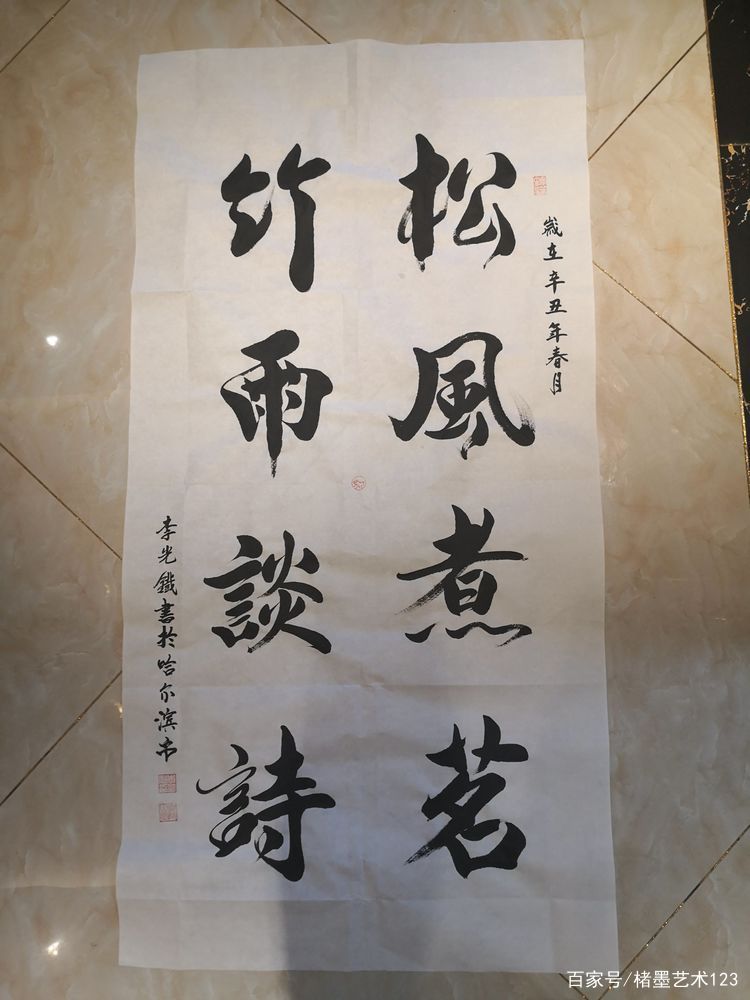 歲在辛丑年春月
松風煮茗
竹雨談詩
李光鐵書於哈尔滨市
百家号/楮墨艺术123